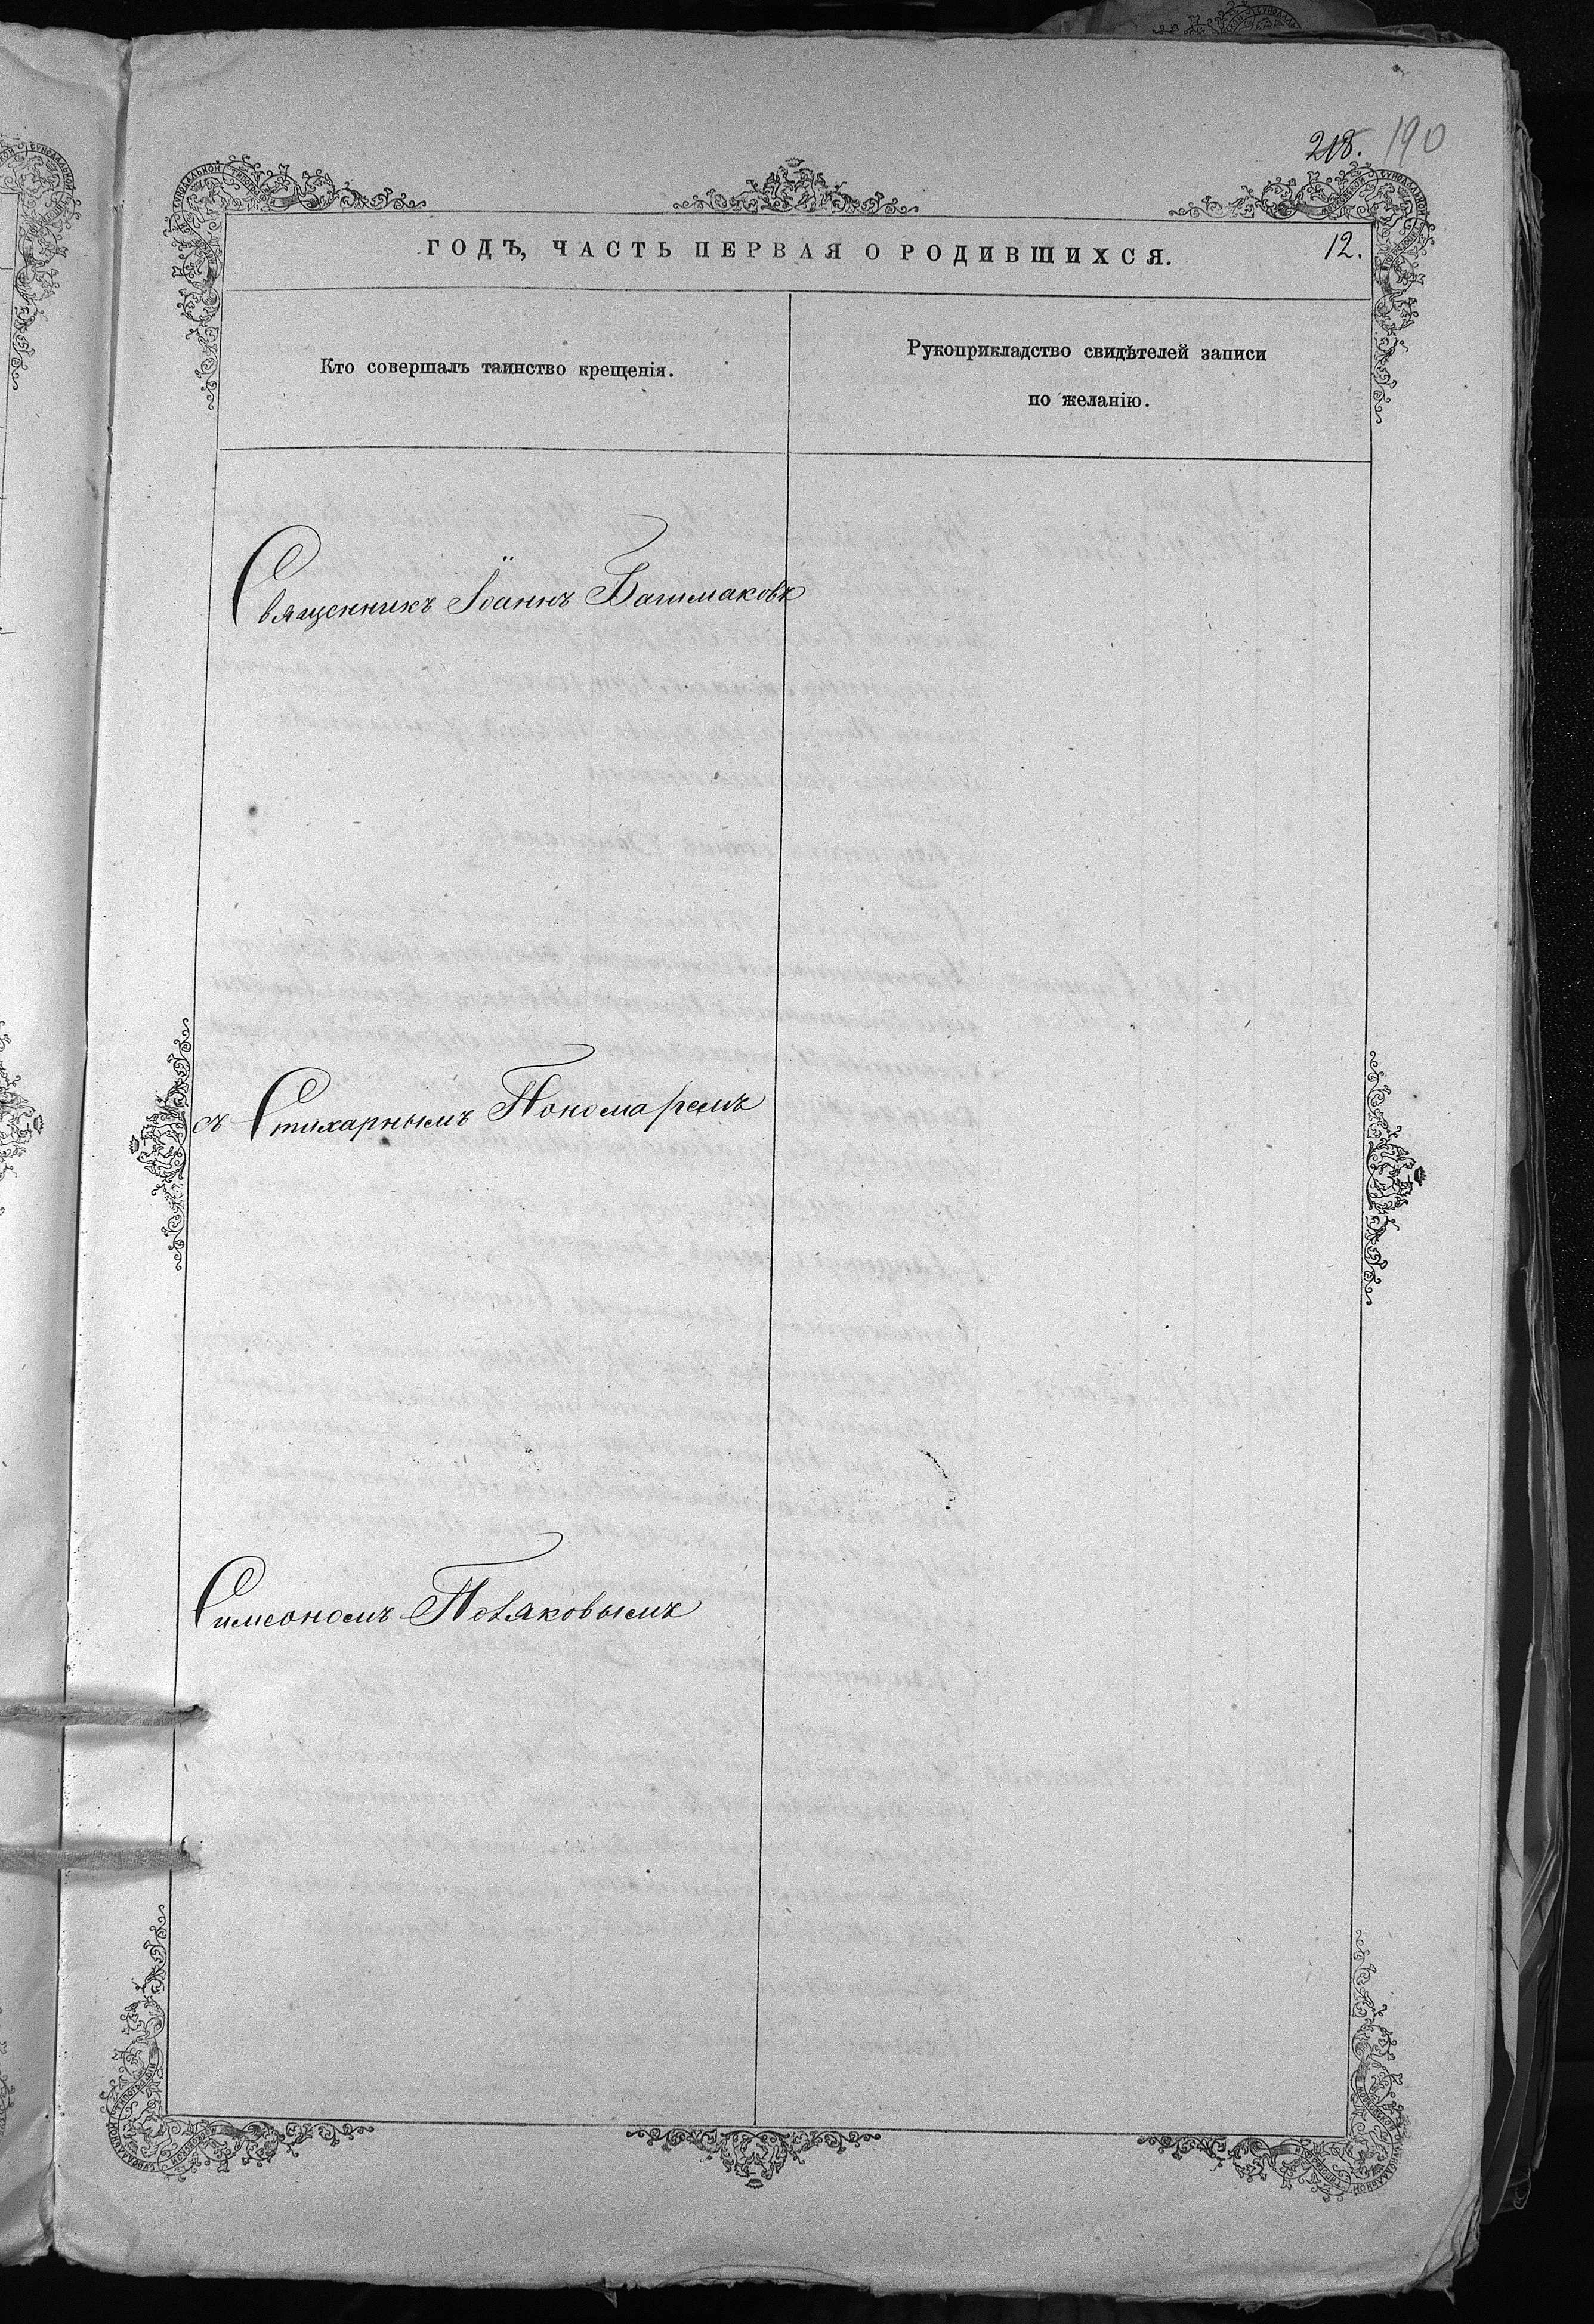 218. 190
ГОДЪ, ЧАСТЬ ПЕРВАЯ О РОДИВШИХСЯ. 12.
Кто совершалъ таинство крещенія.
Рукоприкладство свидѣтелей записи
по желанію.
Священникъ Іоаннъ Башмаковъ
съ Стихарнымъ Пономаремъ
Симеономъ Поляковымъ